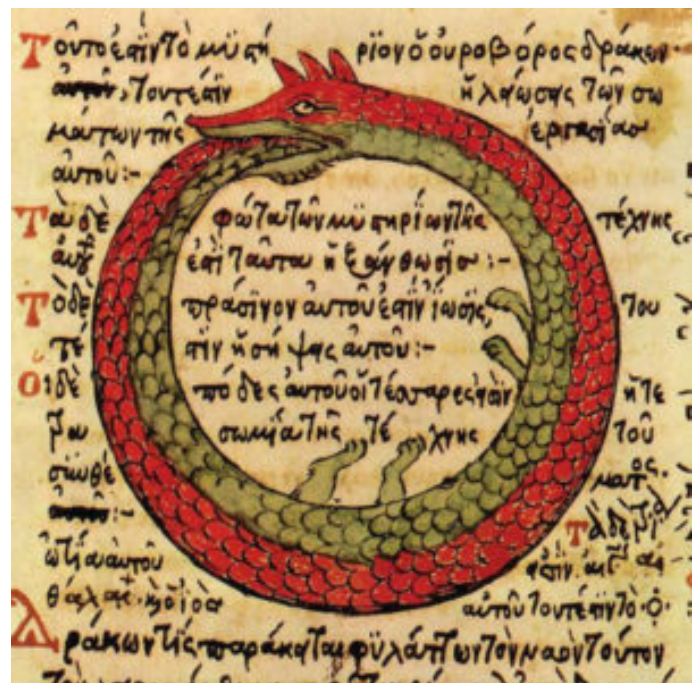 Τοῦτο ἐστὶν τὸ μυστήριον ὁ οὐροβόρος δράκων
τουτέστιν ἡ λείωσης τῶν σω
μάτων τῆς ἐργασίας
αὐτοῦ:-
Τὰ δὲ φῶτα τῶν μυστηρίων τῆς τέχνης
ἐστὶ ταῦτα ἡ ξάνθωσις:-
Τὸ δὲ πράσινον αὐτοῦ ἐστὶν ἴωσις, του
τέ στιν ἡ σήψης αὐτοῦ:-
Οἱ δὲ πόδες αὐτοῦ οἱ τέσσαρες ἐστὶν ἡ τε
τρα σωμία τῆς τέχνης τοῦ
συνθέ ματος.
Τὰ δὲ τρί
ὠτία αὐτοῦ ἐστιν αἰ
θάλαι αὐτοῦ τουτέστιν τὸ
Δράκων τὶς παράκειται φυλάττων τὸν ναὸν τοῦτον